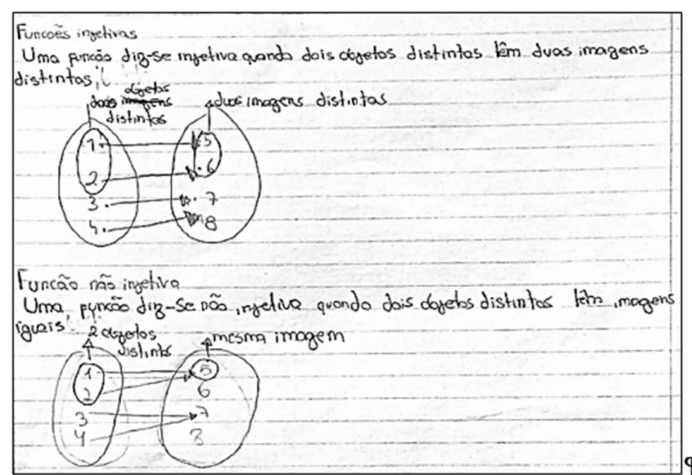 Funcões injetivas
Uma função diz-se injetiva quando dois objetos distintos têm duas imagens
distintas;
objetos
dois imagens
distintos
duas imagens distintas
1 5
2 6
3 7
4 8
Função não injetiva
Uma função diz-se não injetiva quando dois objetos distintos têm imagens
iguais.
2 objetos
distintos
mesma imagem
1 5
2 6
3 7
4 8